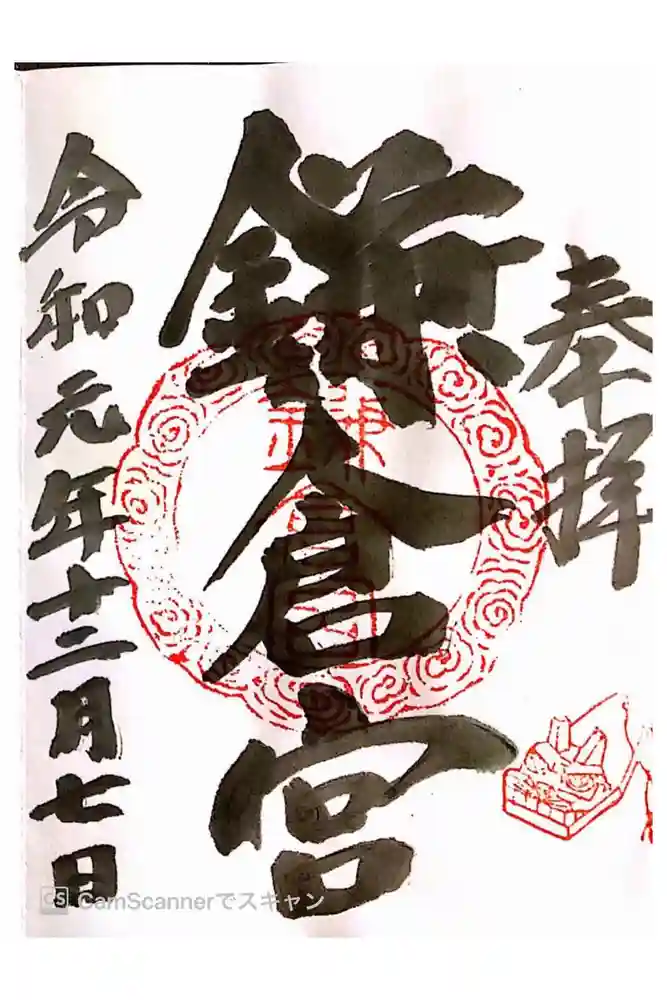 奉拝
鎌倉宮
令和元年十二月七日
CS CamScannerでスキャン